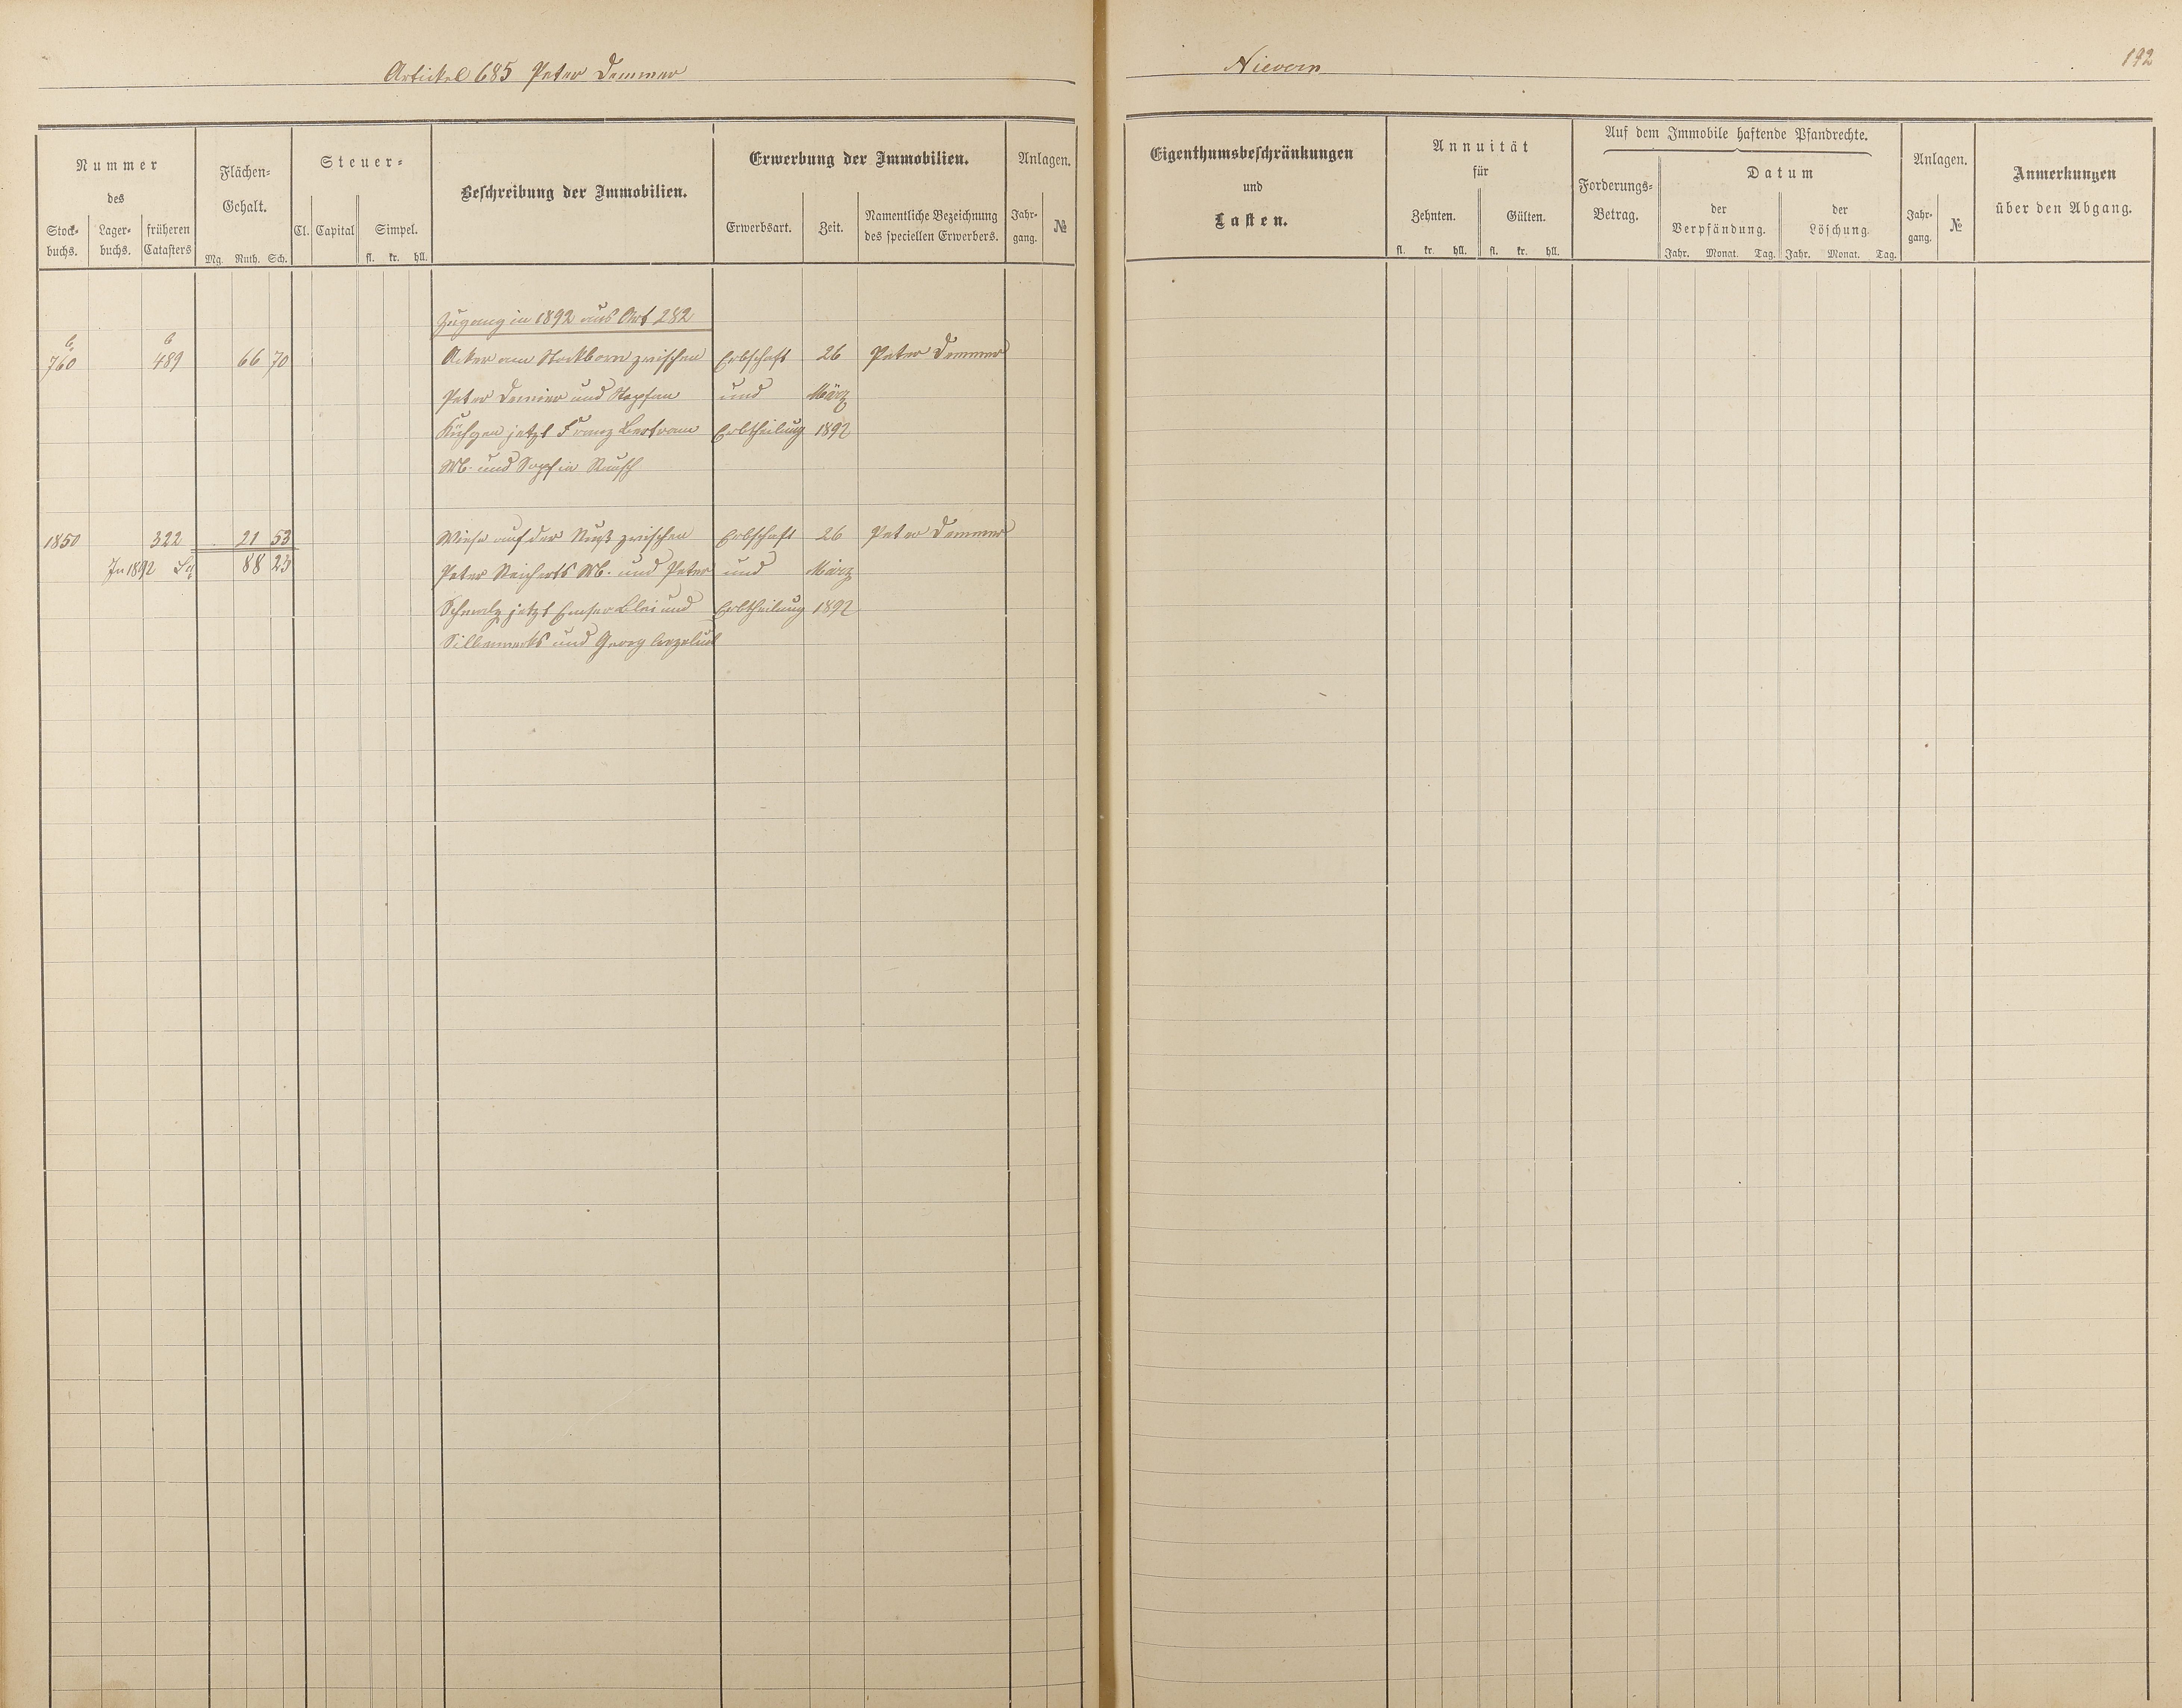 Artickel 685 Peter Demmer
Nievern
192
Nummer
des
Stock-
buchs.
Lager-
buchs.
früheren
Catasters
Flächen-
Gehalt.
Mg. Ruth. Sch.
Steuer-
Cl. Capital Simpel.
fl. kr. hll.
Beschreibung der Immobilien.
Erwerbung der Immobilien.
Erwerbsart. Zeit.
Namentliche Bezeichnung
des speciellen Erwerbers.
Anlagen.
Jahr-
gang.
№
Eigenthumsbeschränkungen
und
Lasten.
Annuität
für
Zehnten. Gülten.
fl. kr. hll. fl. kr. hll.
Auf dem Immobile haftende Pfandrechte.
Forderungs-
Betrag.
Datum
der
Verpfändung.
der
Löschung.
Jahr. Monat. Tag. Jahr. Monat. Tag.
Anlagen.
Jahr-
gang.
№
Anmerkungen
über den Abgang.
Zugang in 1892 aus Art 282
b b
760 489 66 70 Acker am Stockborn zwischen Erbschaft 26 Peter Demmer
Peter Demmer und und März
jetzt Franz Bertram Erbtheilung 1892
M. und Rausch
1850 322 21 53 Wiese auf der zwischen Erbschaft 26 Peter Demmer
In 1892 88 23 Peter Reicherts M. und Peter und März
Schmalz jetzt Emser Blei und Erbtheilung 1892
Silberwerks und Georg